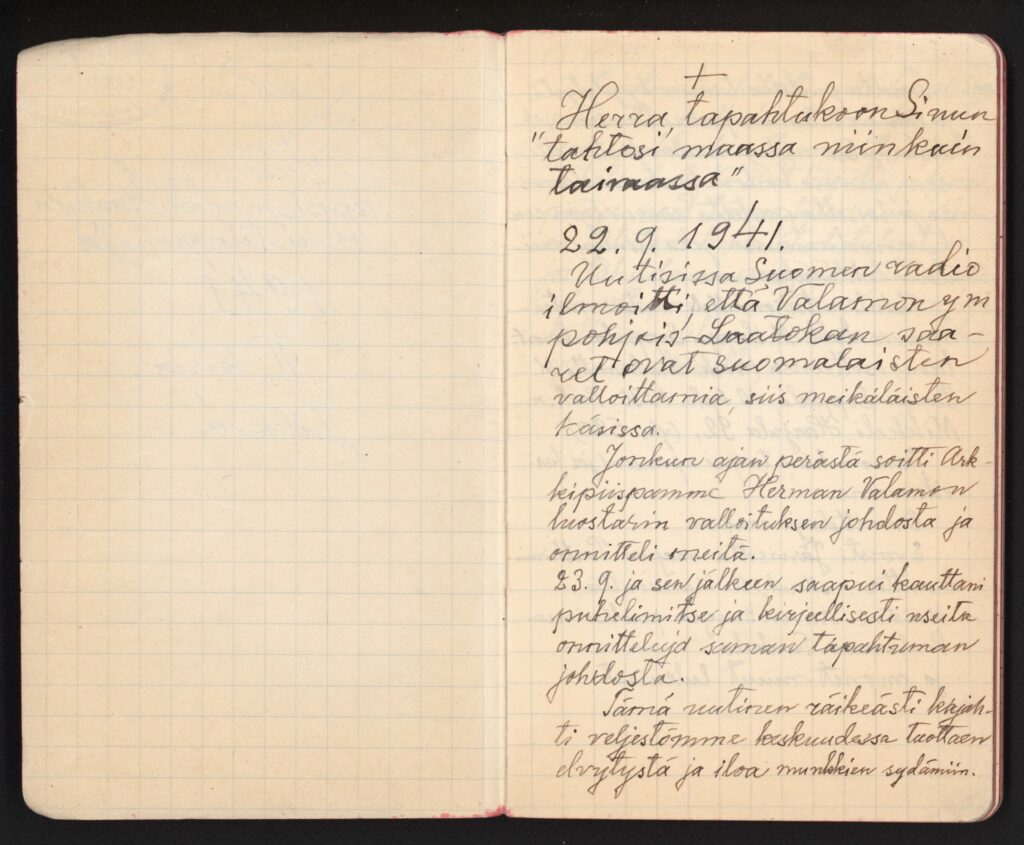 +
Herra, tapahtukoon Sinun
"tahtosi maassa niinkuin
taivaassa"
22. 9. 1941.
Uutisissa Suomen radio
ilmoitti, että Valamon ym
pohjois-Laatokan saa-
ret ovat suomalaisten
valloittamia, siis meikäläisten
käsissä.
Jonkun ajan perästä soitti Ark-
kipiispamme Herman Valamon
luostarin valloituksen johdosta ja
onnitteli meitä.
23. 9. ja sen jälkeen saapui kauttani
puhelimitse ja kirjeellisesti useita
onnitteluja saman tapahtuman
johdosta.
Tämä uutinen räikeästi kajah-
ti veljestömme keskuudessa tuottaen
elvytystä ja iloa munkkien sydämiin.